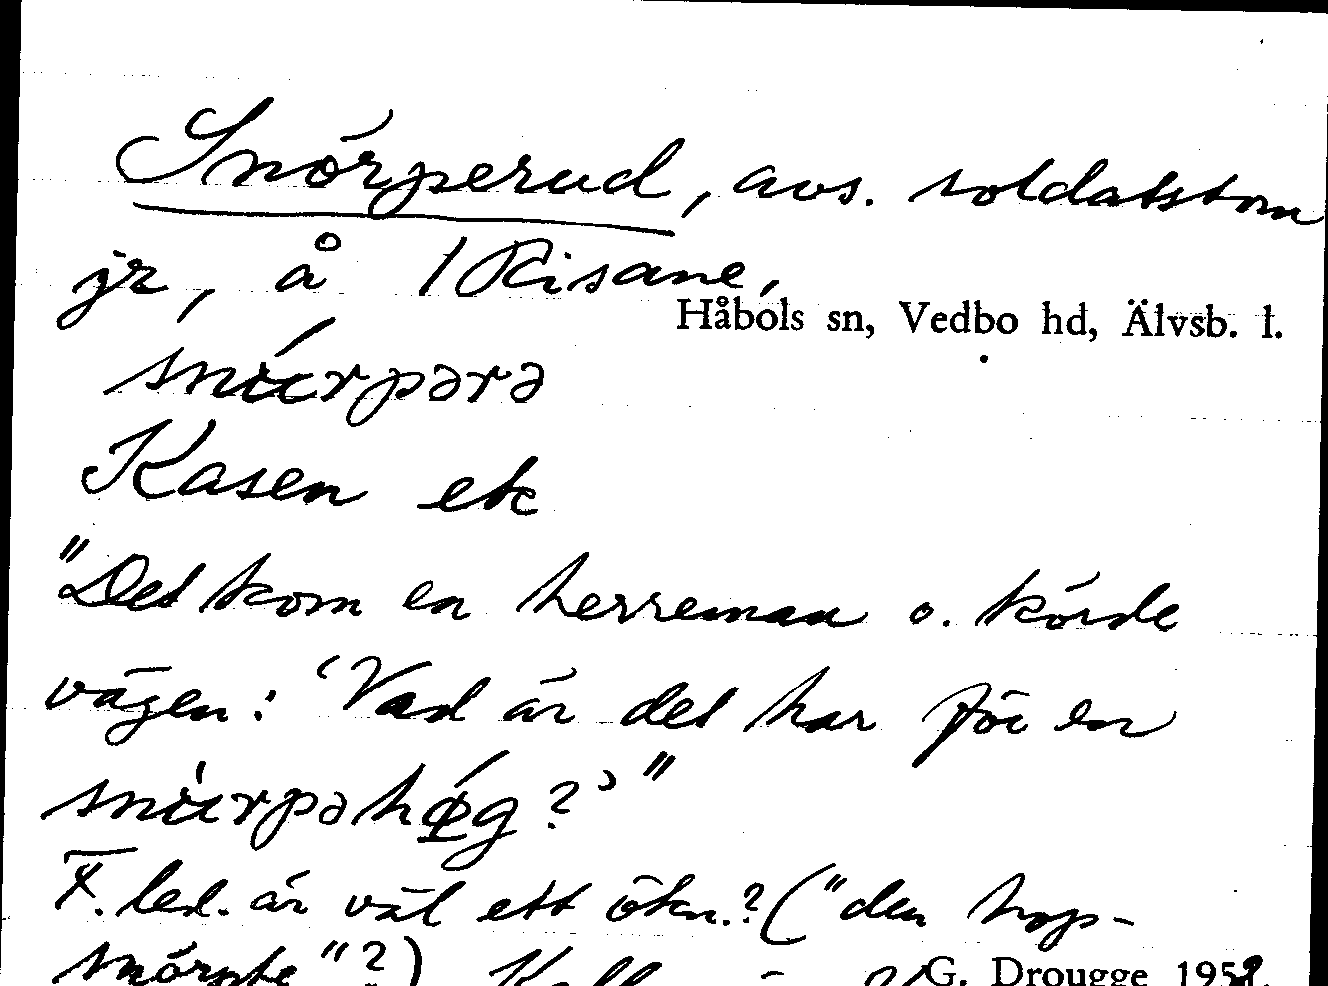 Snörperud, avs. soldatstom
jr, å 1 Risane,
Håbols sn, Vedbo hd, Älvsb. l.
snúrpərə
Kasen etc
"Det kom en herreman o. körde
vägen: 'Vad är det har för en
snùrpəhǿg?'"
F. led. är väl ett ökn.? ("den hop-
snörpte"?)
G. Drougge 1952.